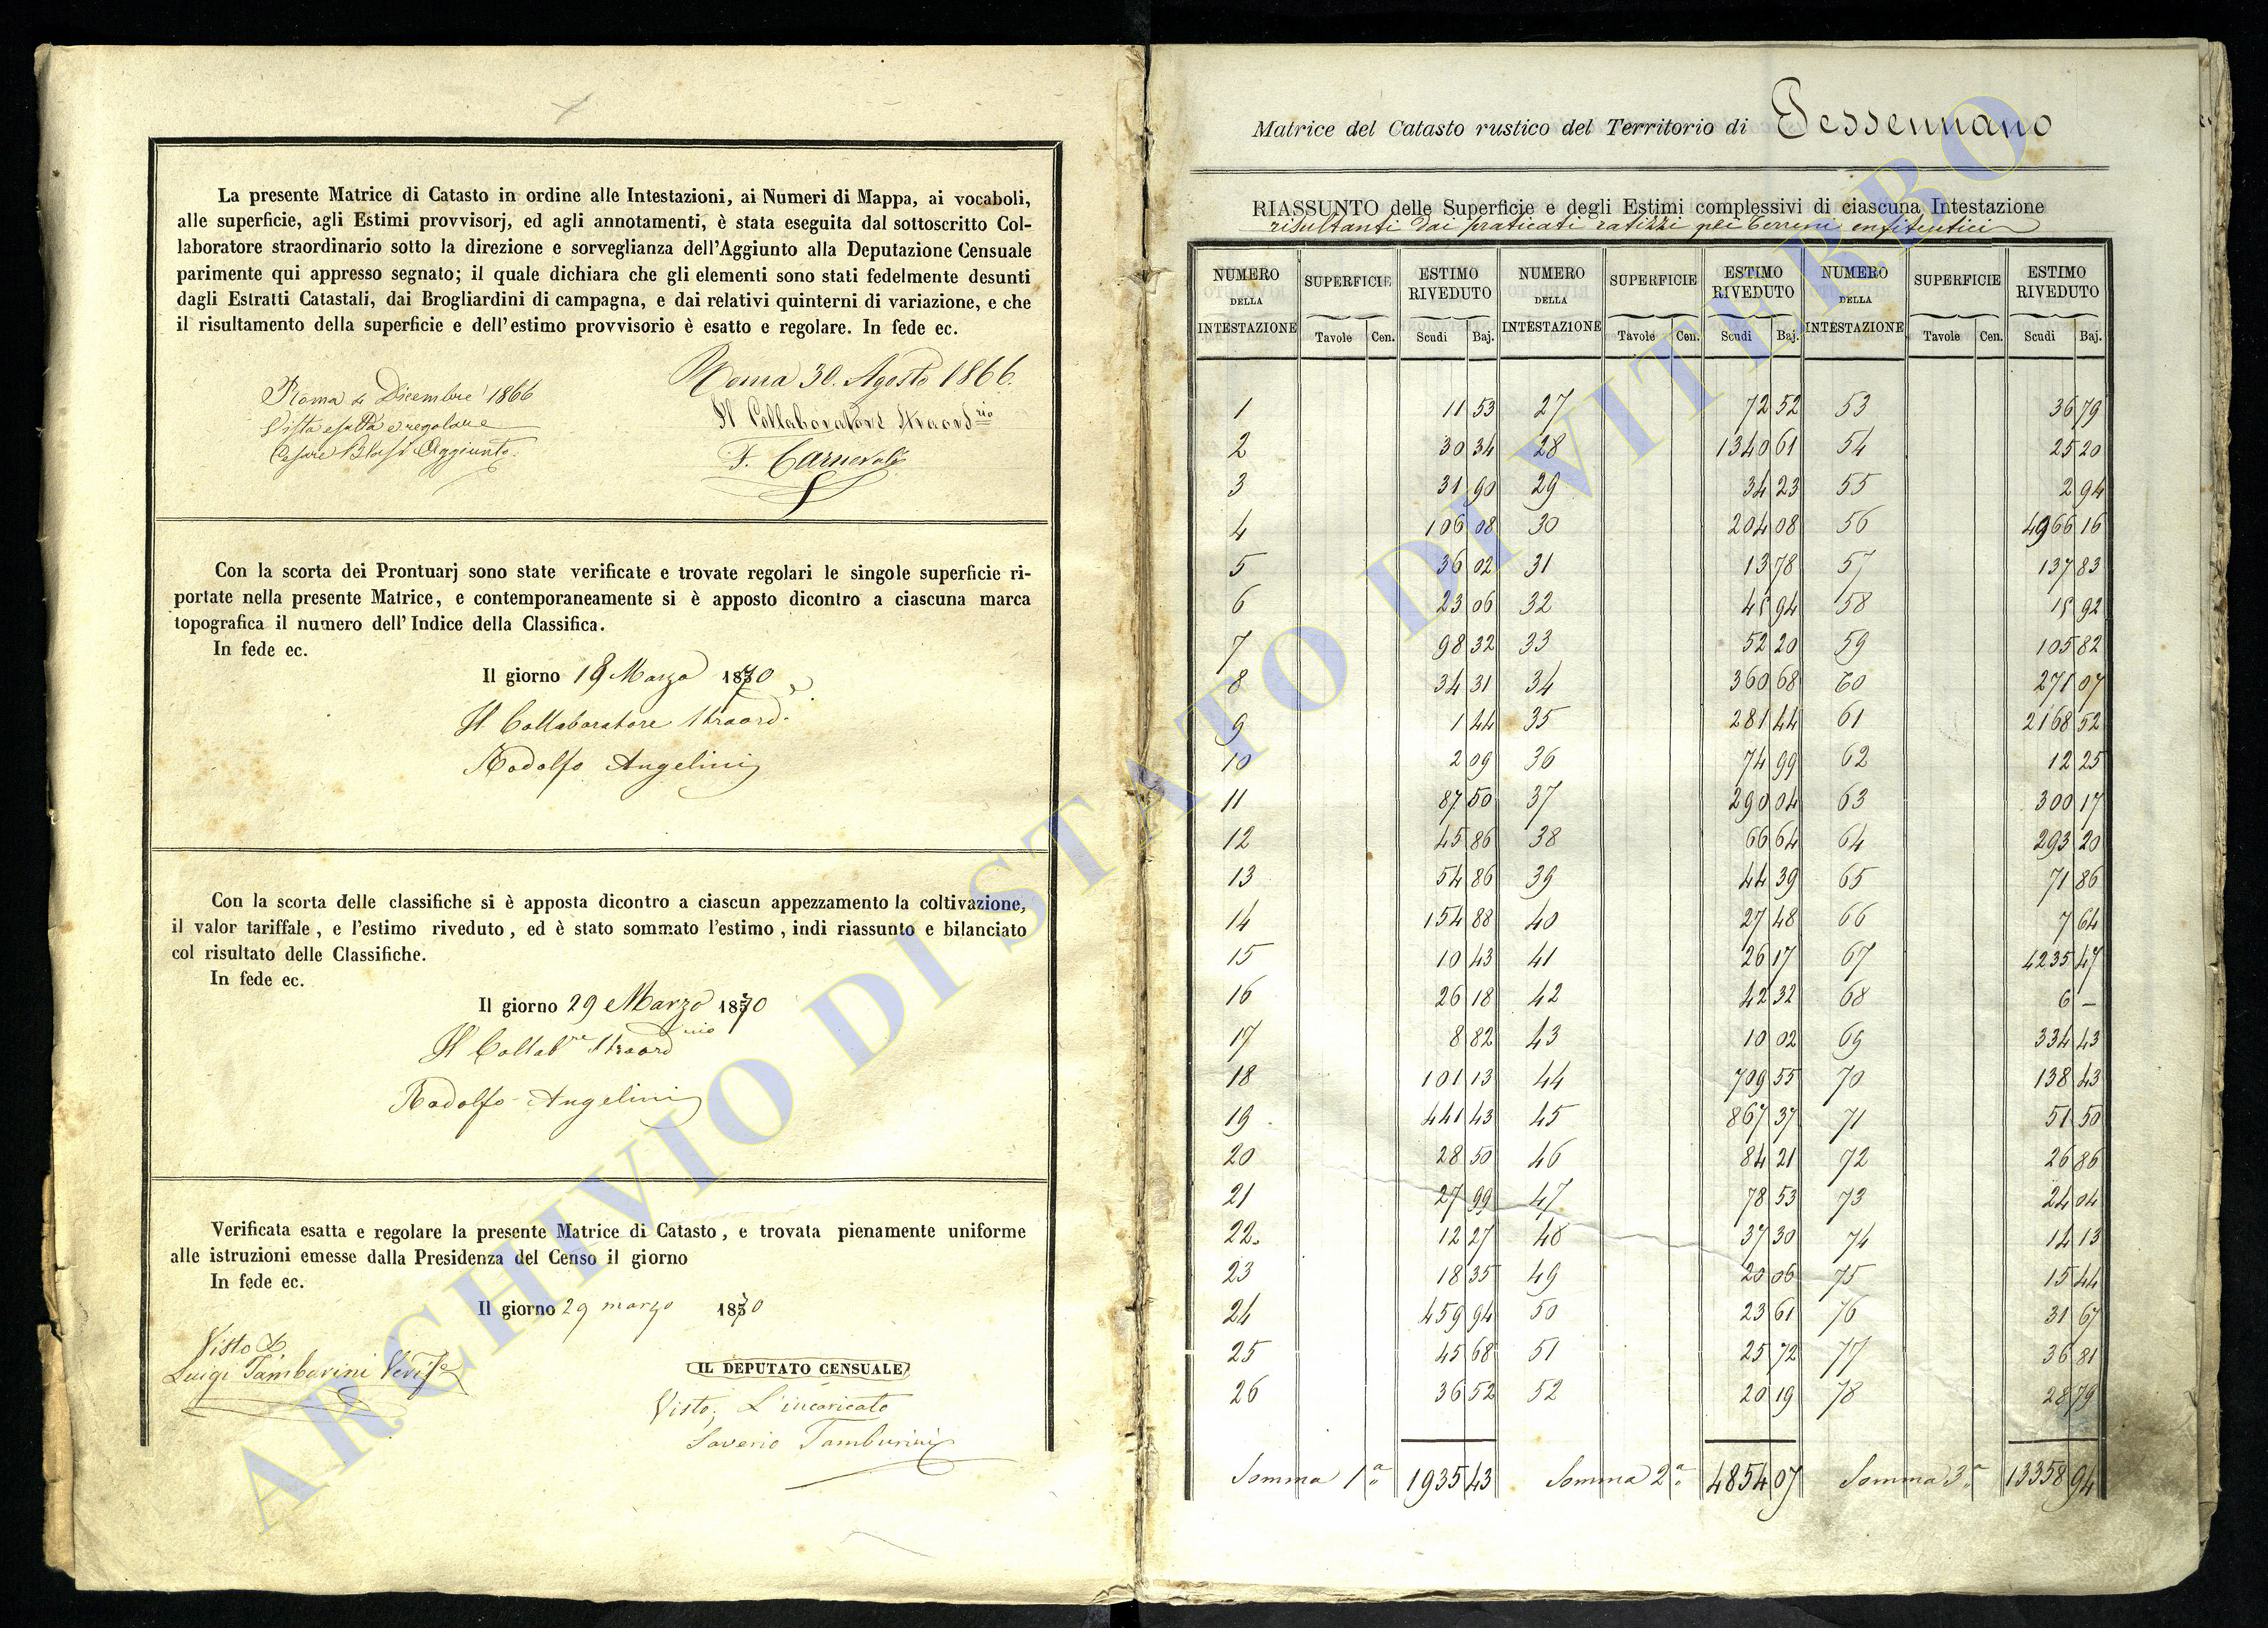 La presente Matrice di Catasto in ordine alle Intestazioni, ai Numeri di Mappa, ai vocaboli,
alle superficie, agli Estimi provvisorj, ed agli annotamenti, è stata eseguita dal sottoscritto Col-
laboratore straordinario sotto la direzione e sorveglianza dell'Aggiunto alla Deputazione Censuale
parimente qui appresso segnato; il quale dichiara che gli elementi sono stati fedelmente desunti
dagli Estratti Catastali, dai Brogliardini di campagna, e dai relativi quinterni di variazione, e che
il risultamento della superficie e dell'estimo provvisorio è esatto e regolare. In fede ec.
Roma 30. Agosto 1866.
Il Collaboratore Straord.rio
F. Carnevali
Roma 4 Dicembre 1866
Vista esatta e regolare
Cesare Aggiunto.
Con la scorta dei Prontuarj sono state verificate e trovate regolari le singole superficie ri-
portate nella presente Matrice, e contemporaneamente si è apposto dicontro a ciascuna marca
topografica il numero dell'Indice della Classifica.
In fede ec.
Il giorno 18 Marzo 1870
Il Collaboratore Straord.
Rodolfo Angelini
Con la scorta delle classifiche si è apposta dicontro a ciascun appezzamento la coltivazione,
il valor tariffale, e l'estimo riveduto, ed è stato sommato l'estimo, indi riassunto e bilanciato
col risultato delle Classifiche.
In fede ec.
Il giorno 29 Marzo 1870
Il Collabre Straordnio
Rodolfo Angelini
Verificata esatta e regolare la presente Matrice di Catasto, e trovata pienamente uniforme
alle istruzioni emesse dalla Presidenza del Censo il giorno
In fede ec.
Il giorno 29 marzo 1870
Visto
Luigi Tamburini
IL DEPUTATO CENSUALE
Visto, L'incaricato
Saverio Tamburini
Matrice del Catasto rustico del Territorio di Tessennano
RIASSUNTO delle Superficie e degli Estimi complessivi di ciascuna Intestazione
risultanti dai praticati ratizzi pei Terreni enfiteutici
NUMERO DELLA INTESTAZIONE SUPERFICIE ESTIMO RIVEDUTO NUMERO DELLA INTESTAZIONE SUPERFICIE ESTIMO RIVEDUTO NUMERO DELLA INTESTAZIONE SUPERFICIE ESTIMO RIVEDUTO
Tavole Cen. Scudi Baj. Tavole Cen. Scudi Baj. Tavole Cen. Scudi Baj.
1 11 53 27 72 52 53 36 79
2 30 34 28 1340 61 54 25 20
3 31 90 29 34 23 55 2 94
4 106 08 30 204 08 56 4966 16
5 36 02 31 13 78 57 137 83
6 23 06 32 45 94 58 15 92
7 98 32 33 52 20 59 105 82
8 34 31 34 360 68 60 271 07
9 1 44 35 281 44 61 2168 52
10 2 09 36 74 99 62 12 25
11 87 50 37 290 04 63 300 17
12 45 86 38 66 64 64 293 20
13 54 86 39 44 39 65 71 86
14 154 88 40 27 48 66 7 64
15 10 43 41 26 17 67 4235 47
16 26 18 42 42 32 68 6 —
17 8 82 43 10 02 69 334 43
18 101 13 44 709 55 70 138 43
19 441 43 45 867 37 71 51 50
20 28 50 46 84 21 72 26 86
21 27 99 47 78 53 73 24 04
22. 12 27 48 37 30 74 14 13
23 18 35 49 20 06 75 15 44
24 459 94 50 23 61 76 31 67
25 45 68 51 25 72 77 36 81
26 36 52 52 20 19 78 28 79
Somma 1a. 1935 43 Somma 2a. 4854 07 Somma 3a. 13358 94
ARCHIVIO DI STATO DI VITERBO